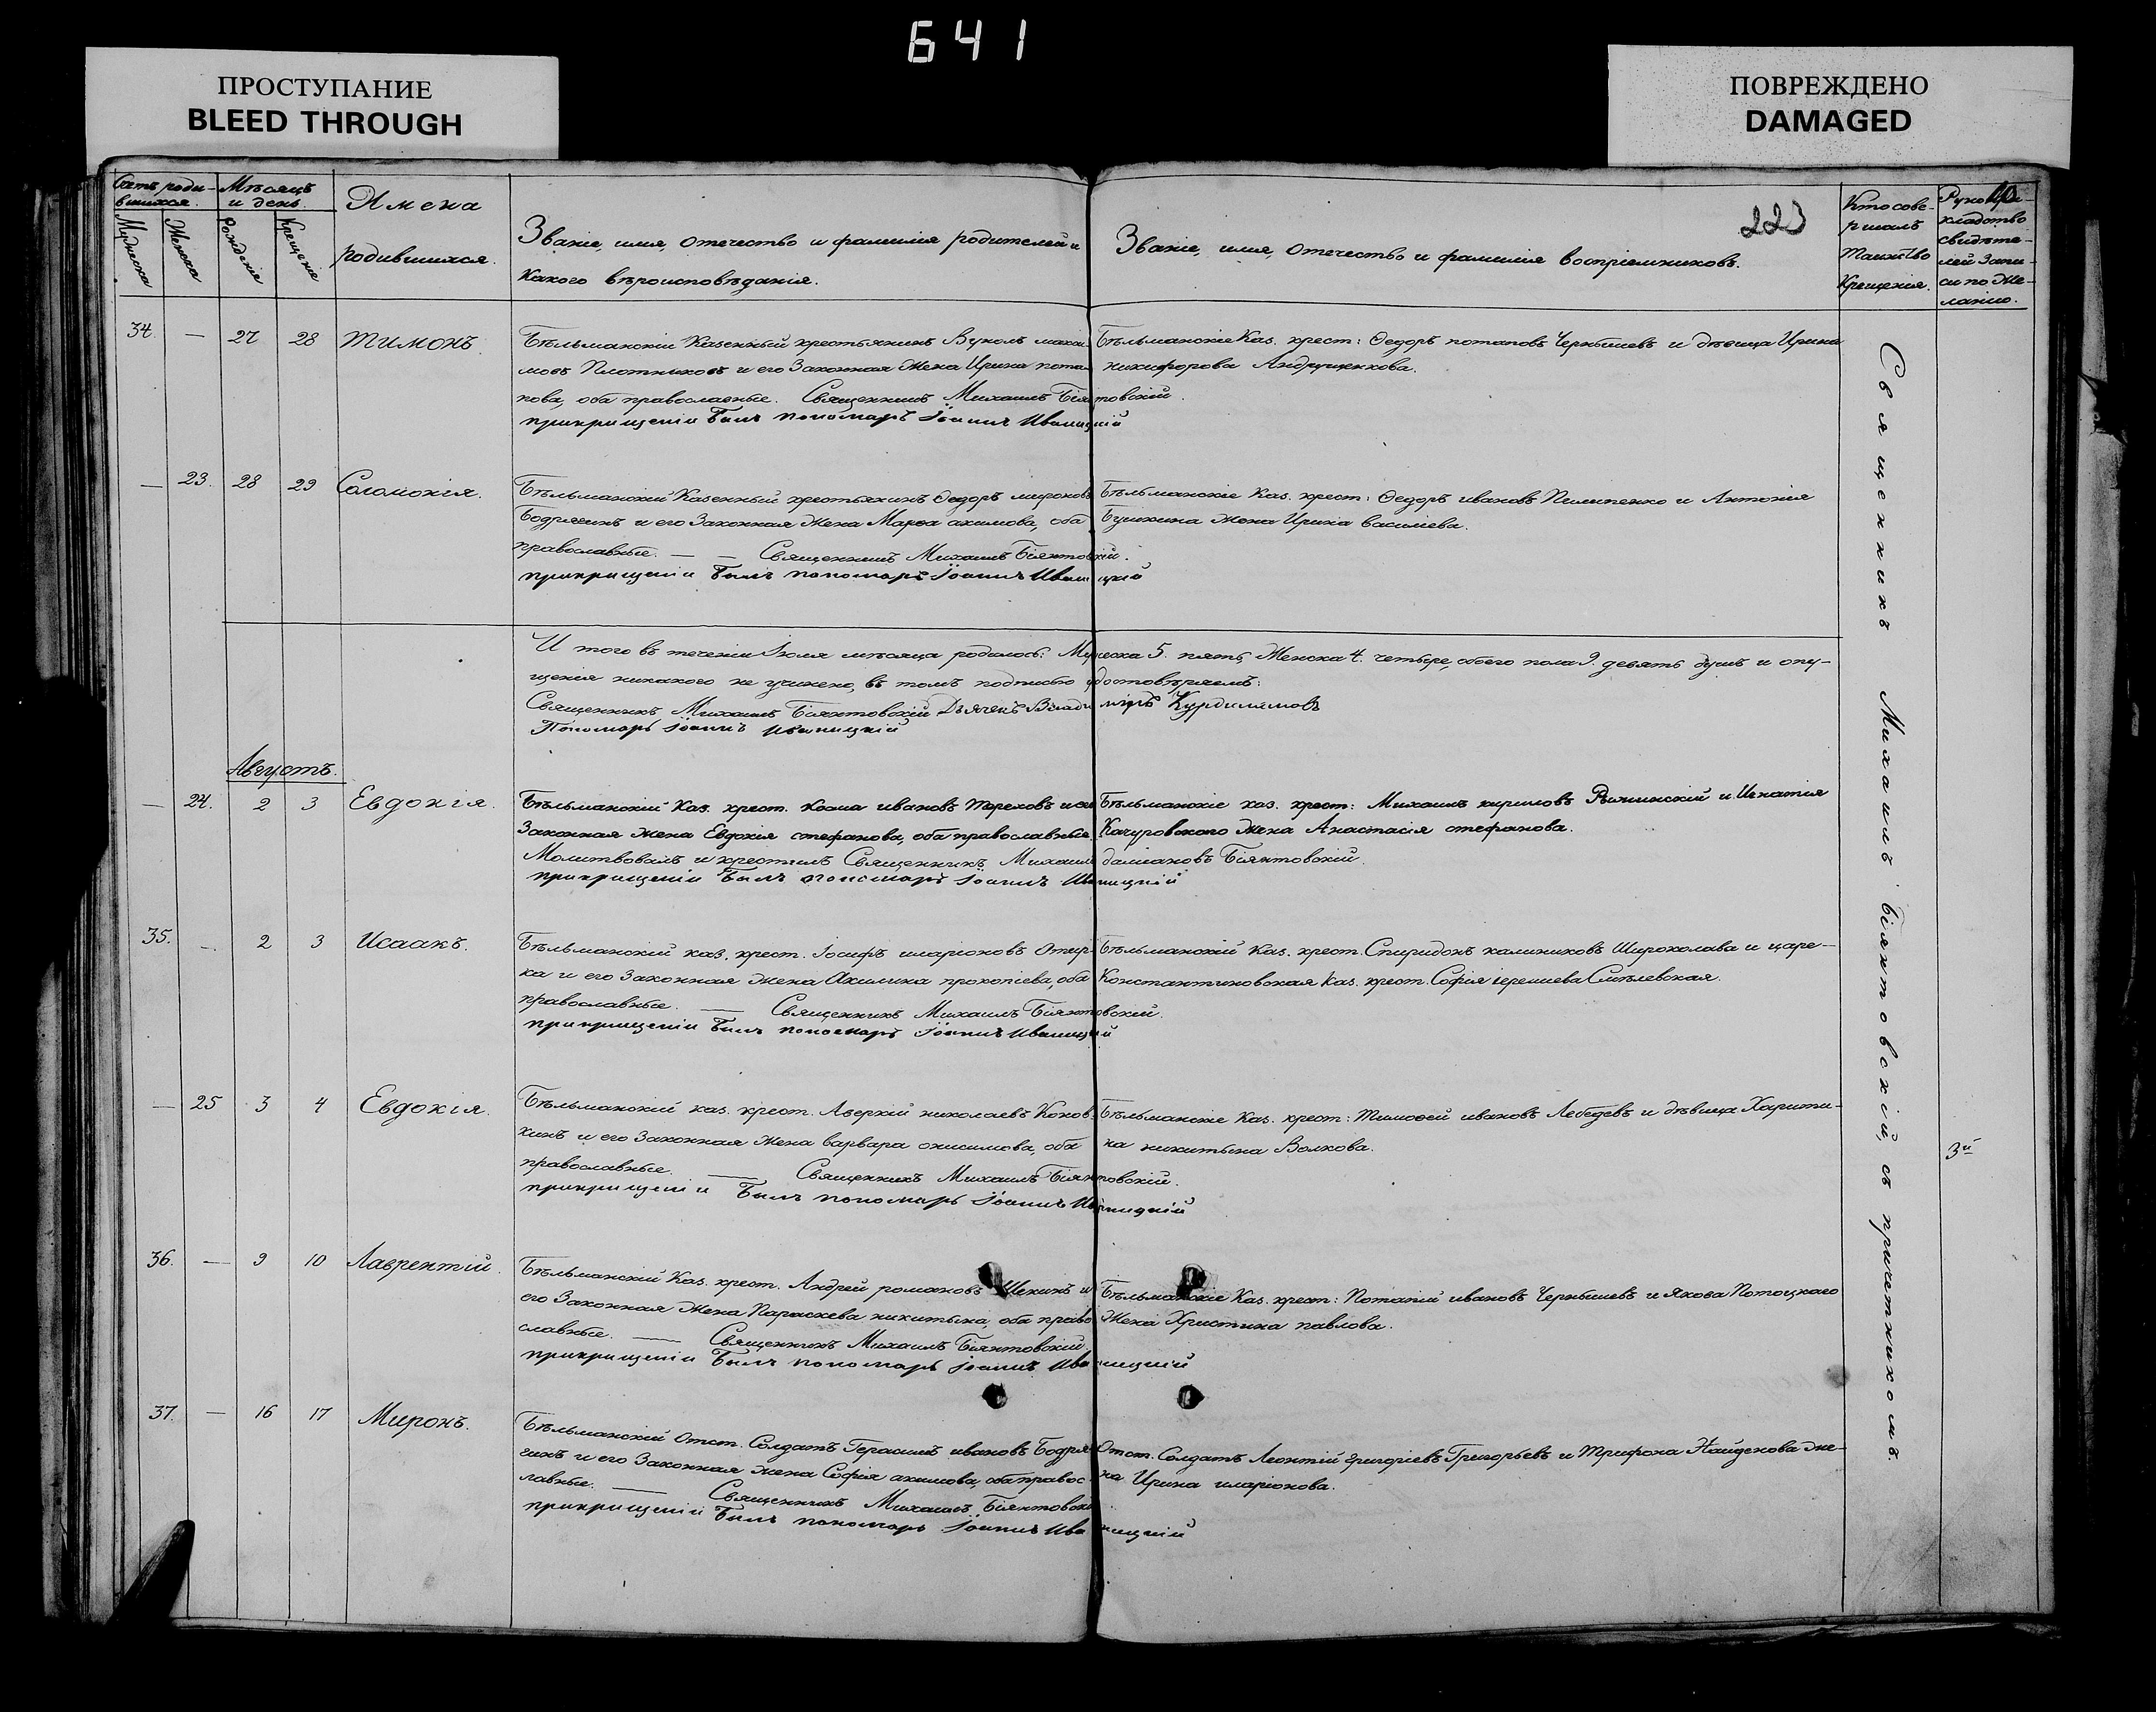 641
ПРОСТУПАНИЕ
BLEED THROUGH
ПОВРЕЖДЕНО
DAMAGED
Счетъ роди-
вшихся.
Мѣсяцъ
и день.
Имена
родившихся.
Мужеска
Женска
Рожденія
Крещенія
Званіе, имя, отечество и фамилія родителей и
какого вѣроисповѣданія.
223
Званіе, имя, отечество и фамилія воспріемниковъ.
Кто сове-
ршалъ
Таинство
Крещенія.
Рукопри-
кладство
свидѣте-
лей запи-
си по же-
ланію.
34. — 27 28 Тимонъ.
Бѣльманскій Казенный крестьянинъ Вуколъ макси-
мовъ Плотниковъ и его Законная Жена Ирина пота-
пова, оба православные. Священникъ Михаилъ Біянтовскій.
прикрищеніи Былъ пономарь Іоаннъ Иваницкій
Бѣльманскіе Каз. крест: Ѳедоръ потаповъ Чернышевъ и дѣвица Ирина
никифорова Андрущенкова.
— 23. 28 29 Соломонія.
Бѣльманскій Казенный крестьянинъ Ѳедоръ мироновъ
Бодрягинъ и его Законная Жена Марѳа акимова, оба
православные. — — Священникъ Михаилъ Біянтовскій.
прикрищеніи Былъ пономарь Іоаннъ Иваницкій
Бѣльманскіе Каз. крест: Ѳедоръ ивановъ Пилипенко и Антонія
жена Ирина василіева.
И того въ теченіи Іюля мѣсяца родилось: Мужеска 5. пять, Женска 4. четыре, обоего пола 9. девять душъ и опу-
щенія никакого не учинено, въ томъ подписью удостовѣряемъ:
Священникъ Михаилъ Біянтовскій Дьячекъ Владиміръ Курдиламовъ
Пономарь Іоаннъ Иваницкій
Августъ.
— 24. 2 3 Евдокія.
Бѣльманскій Каз. крест. Козма ивановъ Тереховъ и его
Законная жена Евдокія стефанова, оба православные.
Молитвовалъ и крестилъ Священникъ Михаилъ даміановъ Біянтовскій.
прикрищеніи Былъ пономарь Іоаннъ Иваницкій
Бѣльманскіе каз. крест: Михаилъ кириловъ и Игнатія
Качуровского жена Анастасія стефанова.
35. — 2 3 Исаакъ.
Бѣльманскій каз. крест. Іосифъ иларіоновъ Опир-
ка и его Законная Жена Акилина прокопіева, оба
православные. — Священникъ Михаилъ Біянтовскій.
прикрищеніи Былъ пономарь Іоаннъ Иваницкій
Бѣльманскій Каз. крест. Спиридонъ калиниковъ Широколава и царе-
Константиновская Каз. крест. Софія іереміева Смѣлевская.
— 25 3 4 Евдокія.
Бѣльманскій каз. крест. Аверкій николаевъ Коков-
кинъ и его Законная Жена варвара онисимова, оба
православные. — Священникъ Михаилъ Біянтовскій.
прикрищеніи Былъ пономарь Іоаннъ Иваницкій
Бѣльманскіе Каз. крест: Тимоѳей ивановъ Лебедевъ и дѣвица Харити-
на никитына Волкова.
3й
36. — 9 10 Лаврентій.
Бѣльманскій Каз. крест. Андрей романовъ Щекинъ и
его Законная Жена Параскева никитына, оба право-
славные. — Священникъ Михаилъ Біянтовскій
прикрищеніи Былъ пономарь Іоаннъ Иваницкій
Бѣльманскіе Каз. крест: Потапій ивановъ Чернышевъ и Якова Потоцкаго
Жена Христина павлова.
37. — 16 17 Миронъ.
Бѣльманскій Отст. Солдатъ Герасимъ ивановъ Бодря-
гинъ и его Законная жена Софія акимова, оба правос-
лавные. — Священникъ Михаилъ Біянтовскій.
прикрищеніи Былъ пономарь Іоаннъ Иваницкій
Отст. Солдатъ Леонтій григоріевъ Григорьевъ и Трифона Найденова же-
на Ирина иларіонова.
Священникъ Михаилъ Біянтовскій, съ причетникомъ.